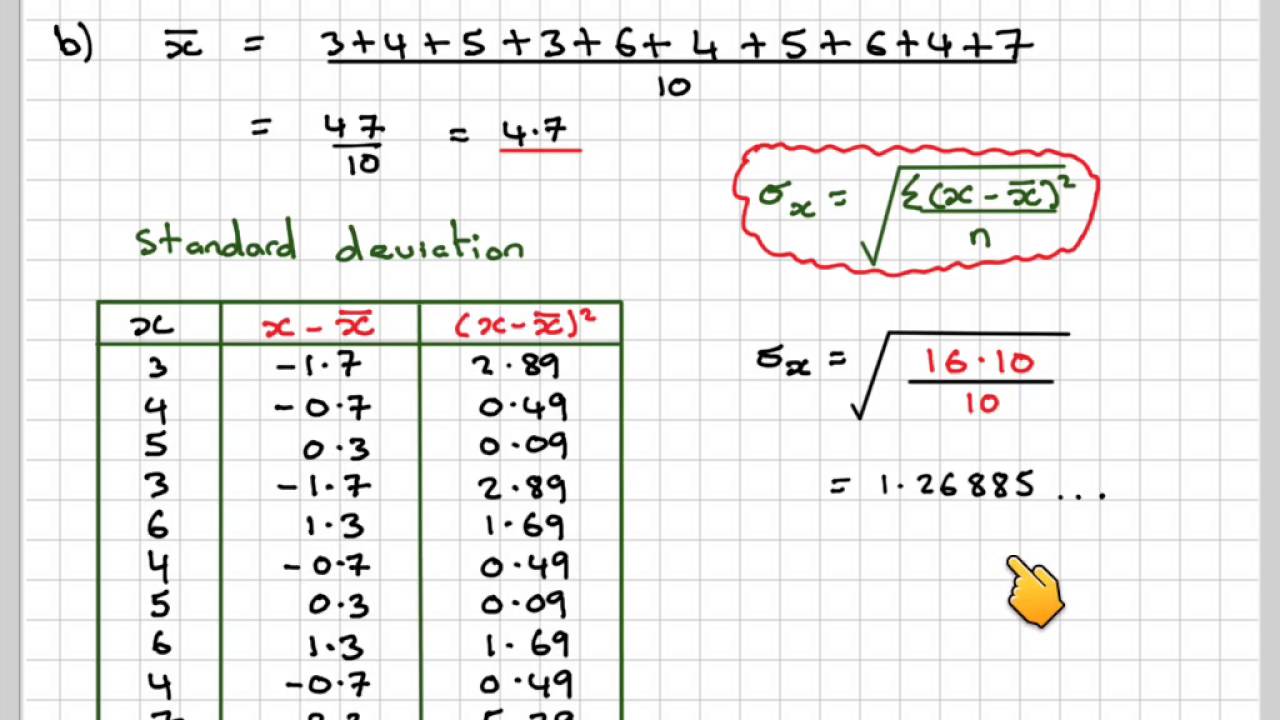 b) x̄ = 3+4+5+3+6+4+5+6+4+7
10
= 47/10 = 4.7
σx = √(Σ(x - x̄)²/n)
standard deviation
x x - x̄ (x - x̄)²
3 -1.7 2.89
4 -0.7 0.49
5 0.3 0.09
3 -1.7 2.89
6 1.3 1.69
4 -0.7 0.49
5 0.3 0.09
6 1.3 1.69
4 -0.7 0.49
σx = √(16.10/10)
= 1.26885...